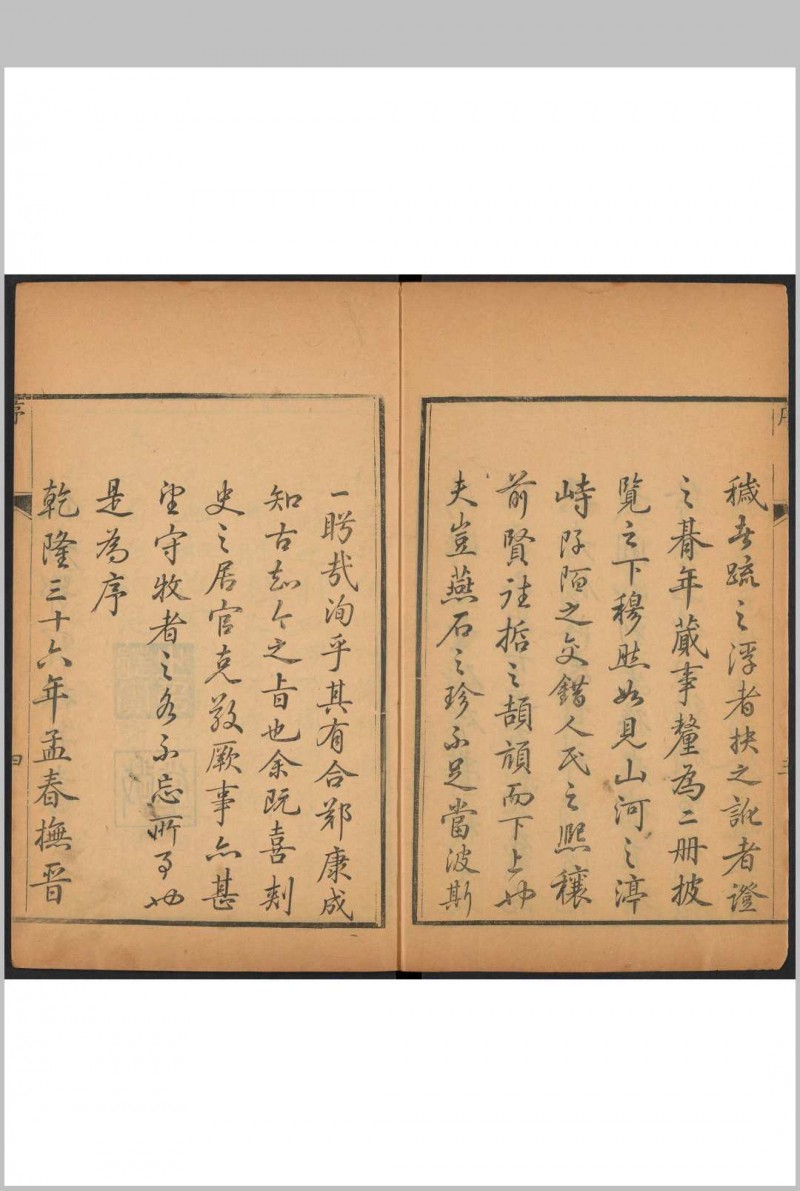 穢者疏之浮者抉之訛者證
之朞年蕆事釐為二冊披
覽之下穆然如見山河之渟
峙阨陋之交錯人民之熙穰
前賢往哲之頡頏而下上也
夫豈燕石之珍不足當波斯
一盻哉洵乎其有合鄭康成
知古知今之旨也余既喜刺
史之居官克敬厥事亦甚
望守牧者之各不忘所事也
是為序
乾隆三十六年孟春撫晉
序
四
三